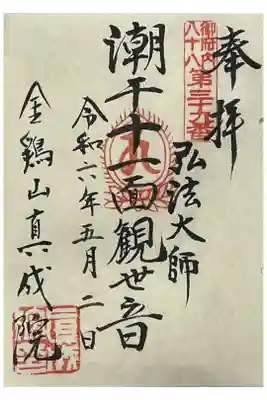 奉拝
御府内
八十八 第三十九番
弘法大師
潮干十一面観世音
令和六年五月二日
金鶏山真成院